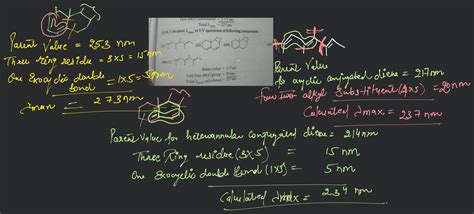 Parent Value = 253 nm
Three ring residue = 3x5 = 15nm
One Exocyclic double bond = 1x5 = 5nm
λmax = 273nm
Q14. Calculate λmax in UV spectrum of following compounds
Parent Value
for acyclic conjugated diene = 217nm
four alkyl substituent (4x5) = 20nm
Calculated λmax = 237 nm
Parent Value for heteroannular conjugated diene = 214nm
Three Ring residue (3X5) = 15 nm
One Exocyclic double bond (1X5) = 5 nm
Calculated λmax = 234 nm